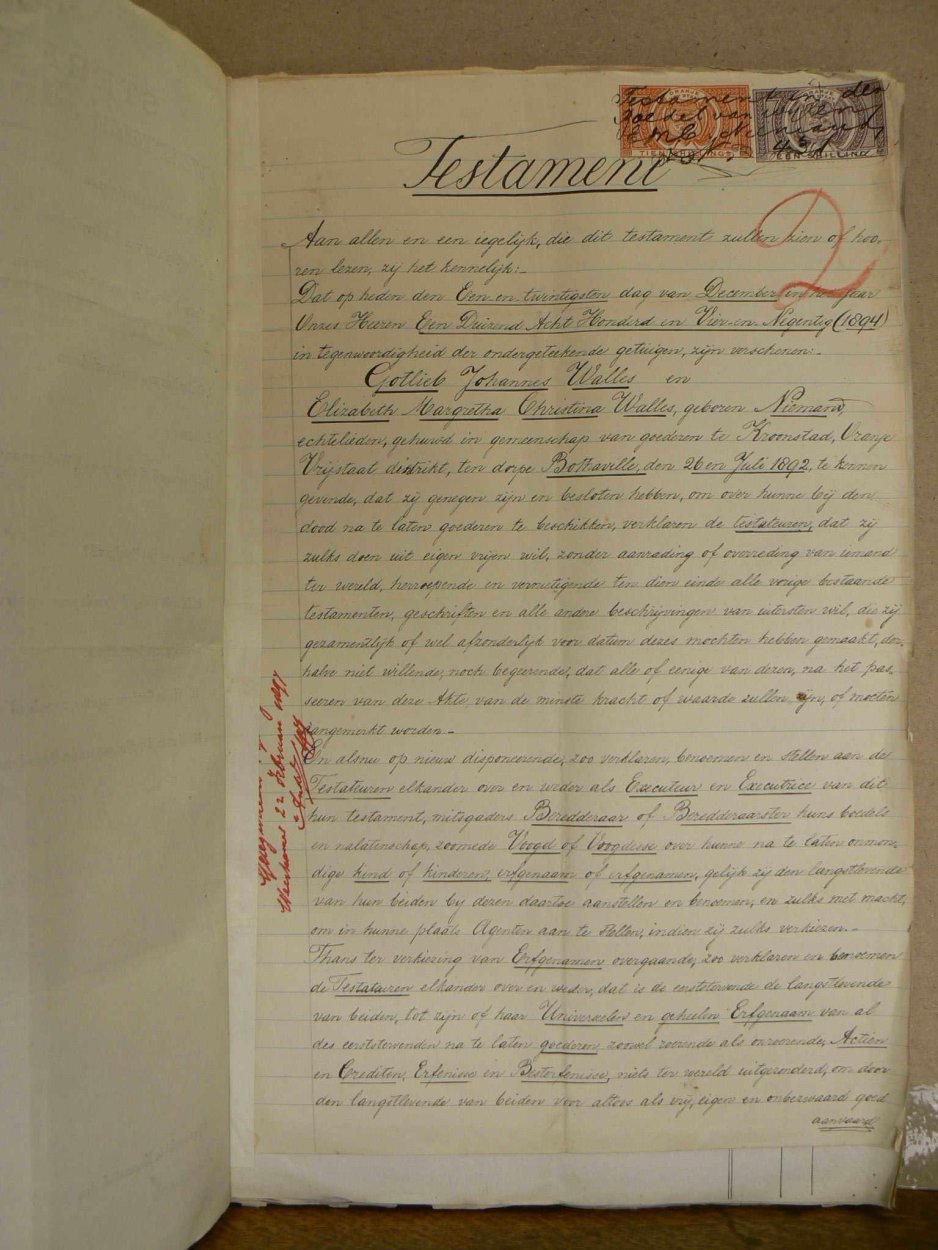 Testament in den
Boedel van wylen
E M C Niemand
ORANJE
TIEN SHILLINGS
EEN SHILLING
Testament
2
Aan allen en een iegelijk, die dit testament zullen zien of hoo-
ren lezen, zij het kennelijk:-
Dat op heden den Een en twintigsten dag van December in het jaar
Onzes Heeren Een Duizend Acht Honderd en Vier-en-Negentig (1894)
in tegenwoordigheid der ondergeteekende getuigen, zijn verschenen:-
Gotlieb Johannes Walles en
Elizabeth Margretha Christina Walles, geboren Niemand,
echtelieden, gehuwd in gemeenschap van goederen te Kroonstad, Oranje
Vrijstaat distrikt, ten dorpe Bothaville, den 26en Juli 1892, te kennen
gevende, dat zij genegen zijn en besloten hebben, om over hunne bij den
dood na te laten goederen te beschikken, verklaren de testateuren, dat zij
zulks doen uit eigen vrijen wil, zonder aanrading of overreding van iemand
ter wereld, herroepende en vernietigende ten dien einde alle vorige bestaande
testamenten, geschriften en alle andere beschrijvingen van uitersten wil, die zij
gezamentlijk of wel afzonderlijk voor datum dezes mochten hebben gemaakt, der-
halve niet willende, noch begeerende, dat alle of eenige van deren, na het pas-
seeren van deze Akte, van de minste kracht of waarde zullen zijn, of mocten
aangemerkt worden.-
En alsnu op nieuw disponeerende, zoo verklaren, benoemen en stellen aan de
Testateuren elkander over en weder als Executeur en Executrice van dit
hun testament, mitsgaders Beredderaar of Beredderaarster huns boedels
en nalatenschap, zoomede Voogd of Voogdesse over hunne na te laten onmon-
dige kind of kinderen, erfgenaam of erfgenamen, gelijk zij den langstlevende
van hun beiden by deren daartoe aanstellen en benoemen, en zulks met macht,
om in hunne plaats Agenten aan te stellen, indien zij zulks verkiezen.-
Thans ter verkiezing van Erfgenamen overgaande, zoo verklaren en benoemen
de Testaturen elkander over en weder, dat is de eerststervende de langstlevende
van beiden, tot zijn of haar Universeelen en geheelen Erfgenaam van al
des eerststervenden na te laten goederen, zoowel roerende als onroerende, Actien
en Crediten, Erfenisse en Besterfenisse, niets ter wereld uitgezonderd, om door
den langstlevende van beiden voor altoos als vrij, eigen en onbezwaard goed
aanvaard
22 Februari 1897